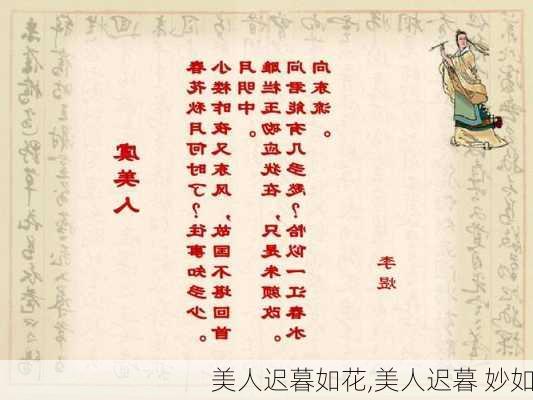 虞美人
春花秋月何时了？往事知多少。
小楼昨夜又东风，故国不堪回首
月明中。
雕栏玉砌应犹在，只是朱颜改。
问君能有几多愁？恰似一江春水
向东流。
李煜
美人迟暮如花,美人迟暮 妙如